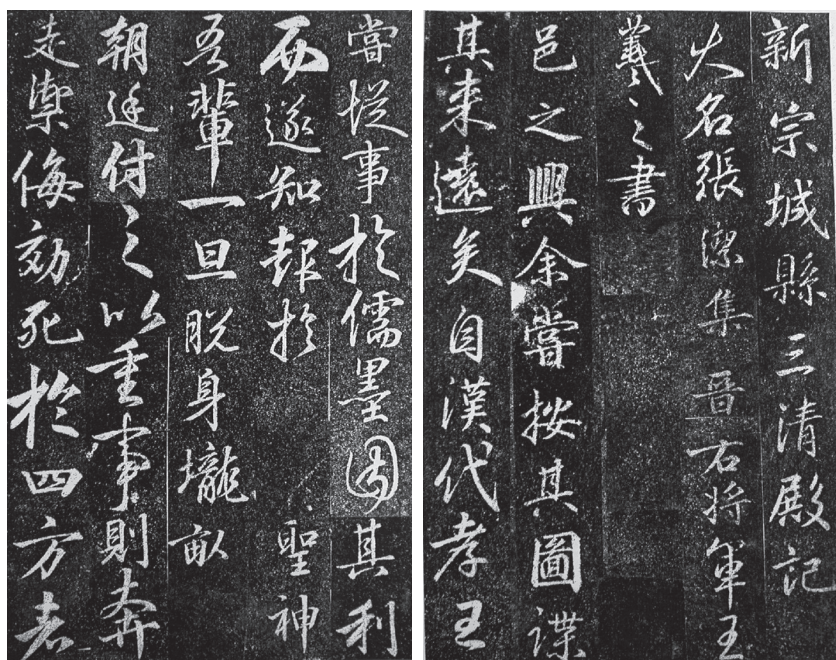 新宗城縣三清殿記
大名張潔集晉右將軍王
羲之之書
邑之興余嘗按其圖諜
其来遠矣自漢代孝王
嘗從事於儒墨固其利
西遂知報於聖神
吾輩一旦脫身壠畝
朝廷付之以重事則奔
走禦侮効死於四方者